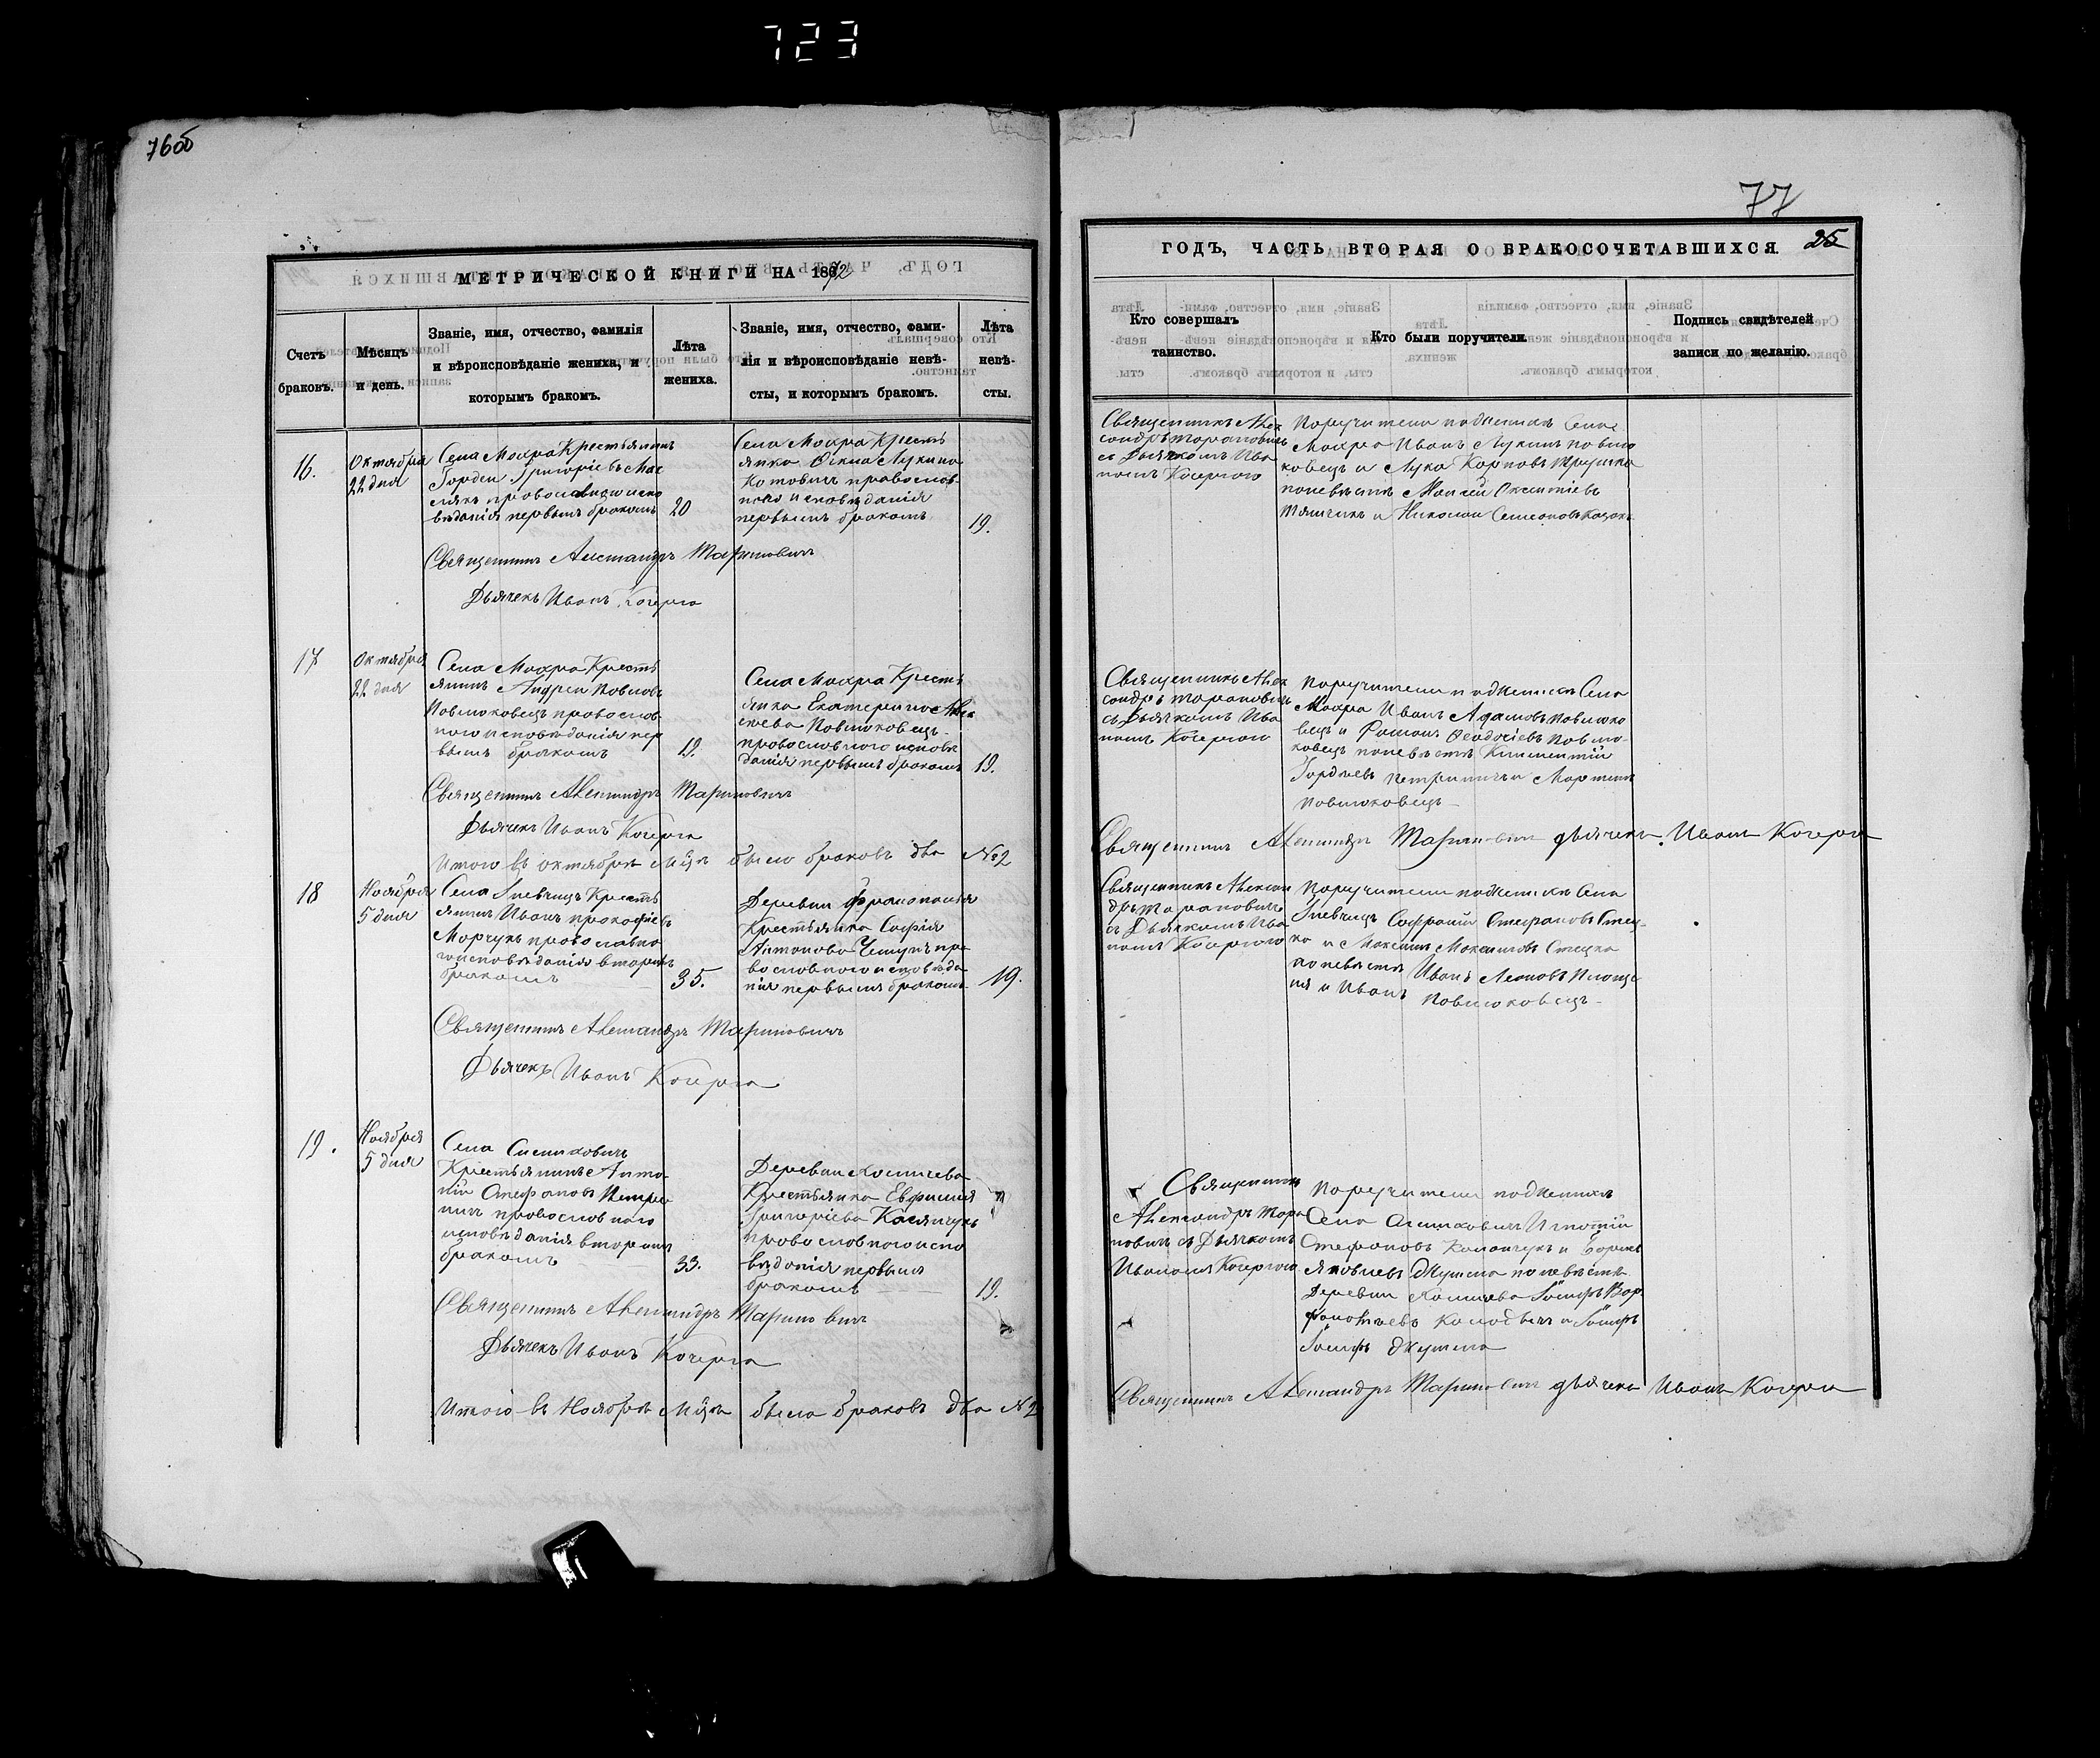 723
76об
МЕТРИЧЕСКОЙ КНИГИ НА 1872
Счетъ браковъ.
Мѣсяцъ и день.
Званіе, имя, отчество, фамилія
и вѣроисповѣданіе жениха, и
которымъ бракомъ.
Лѣта
жениха.
Званіе, имя, отчество, фами-
лія и вѣроисповѣданіе невѣ-
сты, и которымъ бракомъ.
Лѣта
невѣ-
сты.
16.
Октября
22 дня
Села Мохра Крестьянинъ
Гордей Григоріевъ Мас
лякъ православнаго испо
вѣданія первымъ бракомъ
20
Села Мохра Кресть
янка Лукина
Котовичъ православ
наго исповѣданія
первымъ бракомъ
19.
Священникъ Александръ Тарановичъ
Дьячекъ Иванъ Кочерга
17
Октября
22 дня
Села Мохра Кресть
янинъ Андрей Павловъ
Павлюковецъ православ
наго исповѣданія пер
вымъ бракомъ
19.
Села Мохра Кресть
янка Екатерина Алек
сѣева Павлюковецъ
православнаго исповѣ
данія первымъ бракомъ
19.
Священникъ Александръ Тарановичъ
Дьячекъ Иванъ Кочерга
Итого въ октябрѣ м-цѣ было браковъ два №2
18
Ноября
5 дня
Села Кресть
янинъ Иванъ Прокофіевъ
Марчукъ православна
го исповѣданія вторымъ
бракомъ
35.
Деревни
Крестьянка Софія
Антонова пра
вославнаго исповѣда
нія первымъ бракомъ
19.
Священникъ Александръ Тарановичъ
Дьячекъ Иванъ Кочерга
19.
Ноября
5 дня
Села
Крестьянинъ Анто
ній Стефановъ Петри
православнаго
исповѣданія вторымъ
бракомъ
33.
Деревни
Крестьянка Евфимія
Григоріева Касянчукъ
православнаго испо
вѣданія первымъ
бракомъ
19.
Священникъ Александръ Тарановичъ
Дьячекъ Иванъ Кочерга
Итого въ Ноябрѣ м-цѣ было браковъ два №2
77
ГОДЪ, ЧАСТЬ ВТОРАЯ О БРАКОСОЧЕТАВШИХСЯ.
25
Кто совершалъ
таинство.
Кто были поручители.
Подпись свидѣтелей
записи по желанію.
Священникъ Алек
сандръ Тарановичъ
съ Дьячкомъ Ива
номъ Кочергою
Поручители по женихѣ Села
Мохра Иванъ Лукинъ Павлю
ковецъ и Лука Карповъ
по невѣстѣ Моисей
и Николай Семеоновъ
Священникъ Алек
сандръ Тарановичъ
съ Дьячкомъ Ива
номъ Кочергою
Поручители по женихѣ Села
Мохра Иванъ Адамовъ Павлюко
вецъ и Романъ Павлю
ковецъ по невѣстѣ Климентій
Гордѣевъ и Мартинъ
Павлюковецъ
Священникъ Александръ Тарановичъ дьячекъ Иванъ Кочерга
Священникъ Алексан
дръ Тарановичъ
съ Дьячкомъ Ива
номъ Кочергою
Поручители по женихѣ Села
Софроній Стефановъ Стец
ко и Максимъ Максимовъ Стецко
по невѣстѣ Иванъ Леоновъ
и Иванъ Павлюковецъ
Священникъ
Александръ Тара
новичъ съ Дьячкомъ
Иваномъ Кочергою
Поручители по женихѣ
Села
Стефановъ и Борисъ
Яковлевъ по невѣстѣ
Деревни Іосифъ
и Іосифъ
Іосифъ
Священникъ Александръ Тарановичъ дьячекъ Иванъ Кочерга